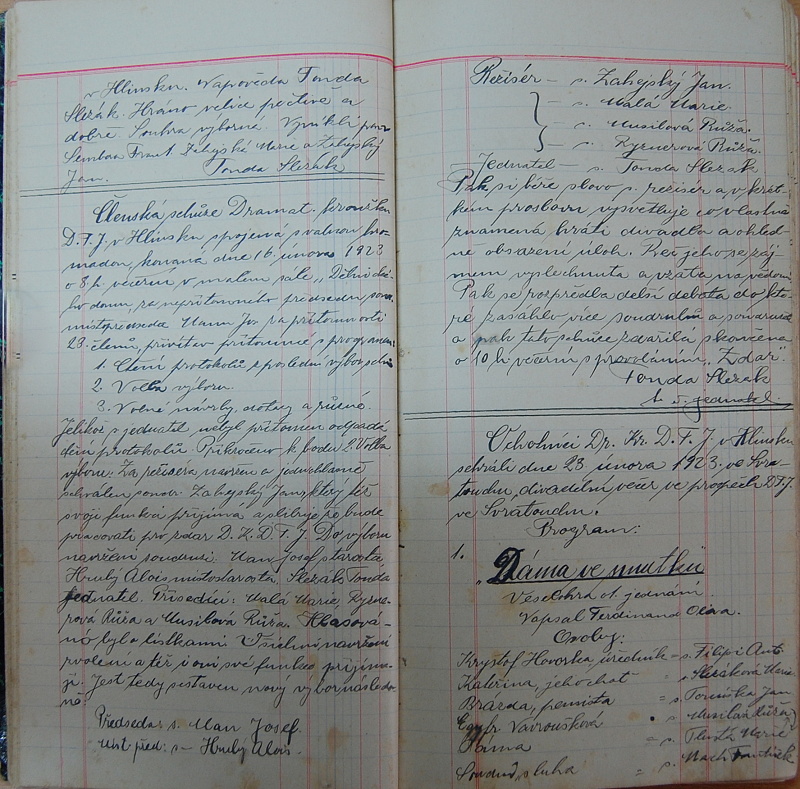 v Hlinsku. Napověda Tonda
Slezák. Hráno velice pečlivě a
dobře. Souhra výborná. Vynikli
Sembas Frant. Zahajská Marie a Zahajský
Jan. Tonda Slezák
Členská schůze Dramat. kroužku
D.T.J. v Hlinsku spojená s valnou hro-
madou, konaná dne 16. února 1923
o 8 h. večerní v malém sále „Dělnické-
ho domu, za nepřítomného předsedu
místopředseda Mann Jos. za přítomnosti
23. členů, přivítav přítomné s programem:
1. Čtení protokolů z poslední výbor. schůze
2. Volba výboru.
3. Volné návrhy, dotazy a různé.
Jelikož s. jednatel nebyl přítomen odpadá
čtení protokolů. Přikročeno k bodu 2. Volba
výboru: Za režiséra navržen a jednohlasně
schválen soudr. Zahajský Jan, který též
svoji funkci přijímá a slibuje, že bude
pracovati pro zdar D. K. D. T. J. Do výboru
navrženi soudruzi: Man Josef, starosta,
Hrubý Alois místostarosta, Slezák Tonda
jednatel. Přísedící: Malá Marie, Rysne-
rová Růža a Musilová Růža. Hlasová-
no bylo lístkami. Všichni navržení
zvoleni a též i oni své funkce přijíma-
jí. Jest tedy ustaven nový výbor násldo-
ně:
Předseda: s. Man Josef.
Míst. před: s – Hrubý Alois.
Režisér – s. Zahajský Jan.
– s. Malá Marie.
– s. Musilová Růža.
– s. Rysnerová Růža.
Jednatel – s. Tonda Slezak
Pak si béře slovo s. režisér a v krát-
kém proslovu vysvětluje co vlastně
znamená hráti divadlo a ohled-
ně obsazení úloh. Řeč jeho se záj-
mem vyslechnuta a vzata na vědomí.
Pak se rozpředla delší debata do kte-
ré zasáhlo více soudruhů a
a pak tato schůze zdařilá skončena
o 10 h. večerní s provoláním. Zdař.
Tonda Slezak
t. č. jednatel.
Ochotníci Dr. Kr. D. T. J. v Hlinsku
sehráli dne 23. února 1923. ve Svra-
touchu, divadelní večer ve prospěch D.T.J.
ve Svratouchu.
Program:
1.
„Dáma ve smutku“
Veselohra o 1. jednání.
Napsal Ferdinand Oliva.
Osoby:
Kryštof Hovorka úředník – s. Filipi Ant.
Kateřina, jeho choť – s. Slezáková Marie
Brázda, pensista = s. Tomiška Jan
Vavroušková • s. Musilová Růža
= s. Tlustá Marie
sluha = s. Mach František